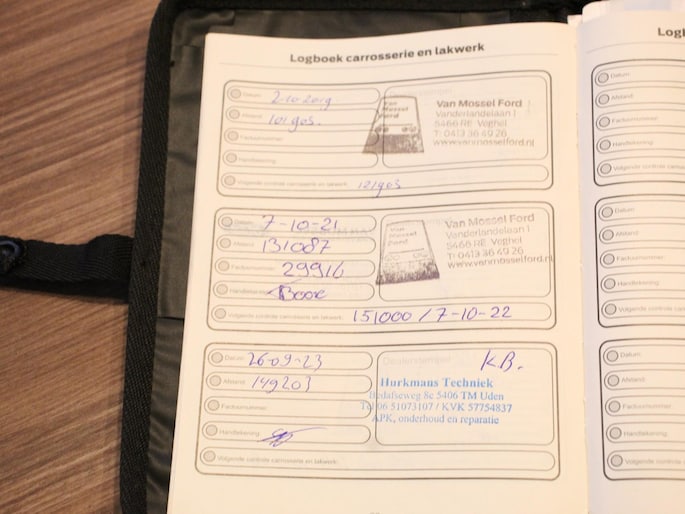 Logboek carrosserie en lakwerk
Datum: 2-10-2019
Afstand: 101903.
Factuurnummer:
Handtekening:
Volgende controle carrosserie en lakwerk: 121903
Van Mossel Ford
Van Mossel Ford
Vanderlandelaan 1
5466 RE Veghel
T: 0413 36 49 26
www.vanmosselford.nl
Datum: 7-10-21
Afstand: 131087
Factuurnummer: 29916
Handtekening:
Volgende controle carrosserie en lakwerk: 151000 / 7-10-22
Van Mossel Ford
Van Mossel Ford
Vanderlandelaan 1
5466 RE Veghel
T: 0413 36 49 26
www.vanmosselford.nl
Datum: 26-09-23
Afstand: 149203
Factuurnummer:
Handtekening:
Volgende controle carrosserie en lakwerk:
Dealerstempel
K.B.
Hurkmans Techniek
8c 5406 TM Uden
Tel 06 51073107 / KVK 57754837
APK, onderhoud en reparatie
Logb
Datum:
Afstand:
Factuurnummer:
Handtekening:
Volgende controle carrosserie
Datum:
Afstand:
Factuurnummer:
Handtekening:
Volgende controle carrosserie
Datum:
Afstand:
Factuurnummer:
Handtekening:
Volgende controle carrosserie